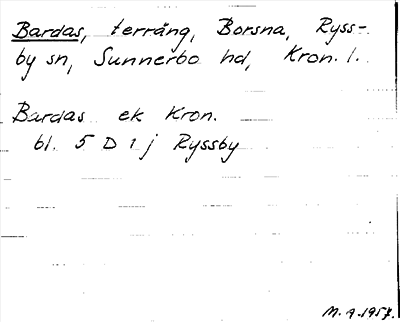 Bardas, terräng, Borsna, Ryss-
by sn, Sunnerbo hd, Kron. l.
Bardas ek Kron.
bl. 5 D 1 j Ryssby
M. A. 1957.